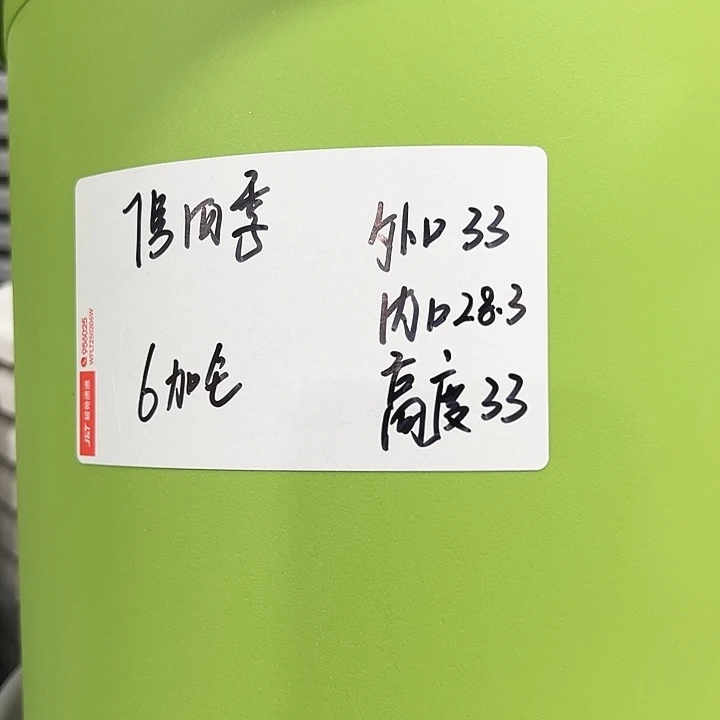 1号四季
6加仑
外口33
内口28.3
高度33
956025
WPLT250206W
J&T 极兔速递